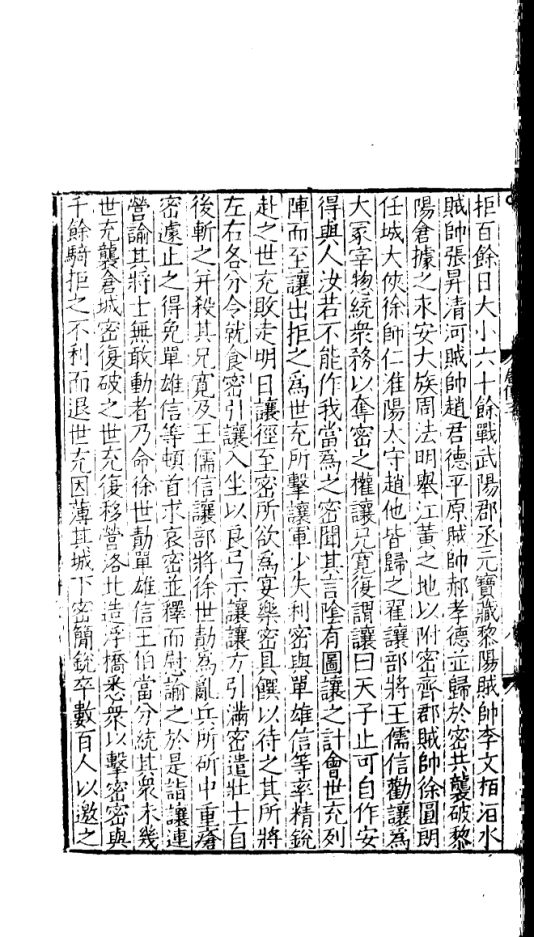 拒百餘日大小六十餘戰武陽郡丞元寶藏黎陽賊帥李文栢洹水
賊帥張昇清河賊帥趙君德平原賊帥郝孝德並歸於密共襲破黎
陽倉據之永安大族周法明舉江黃之地以附密齊郡賊帥徐圓朗
任城大俠徐師仁淮陽太守趙他皆歸之翟讓部將王儒信勸讓爲
大冢宰揔統衆務以奪密之權讓兄寛復謂讓曰天子止可自作安
得與人汝若不能作我當爲之密聞其言隂有圖讓之計會世充列
陣而至讓出拒之爲世充所擊讓軍少失利密與單雄信等率精銳
赴之世充敗走明日讓徑至密所欲爲宴樂密具饌以待之其所將
左右各分令就食密引讓入坐以良弓示讓讓方引滿密遣壯士自
後斬之并殺其兄寛及王儒信讓部將徐世勣爲亂兵所斫中重瘡
密遽止之得免單雄信等頓首求哀密並釋而慰諭之於是詣讓連
營諭其將士無敢動者乃命徐世勣單雄信王伯當分統其衆未幾
世充襲倉城密復破之世充復移營洛北造浮橋悉衆以擊密密與
千餘騎拒之不利而退世充因薄其城下密簡銳卒數百人以邀之